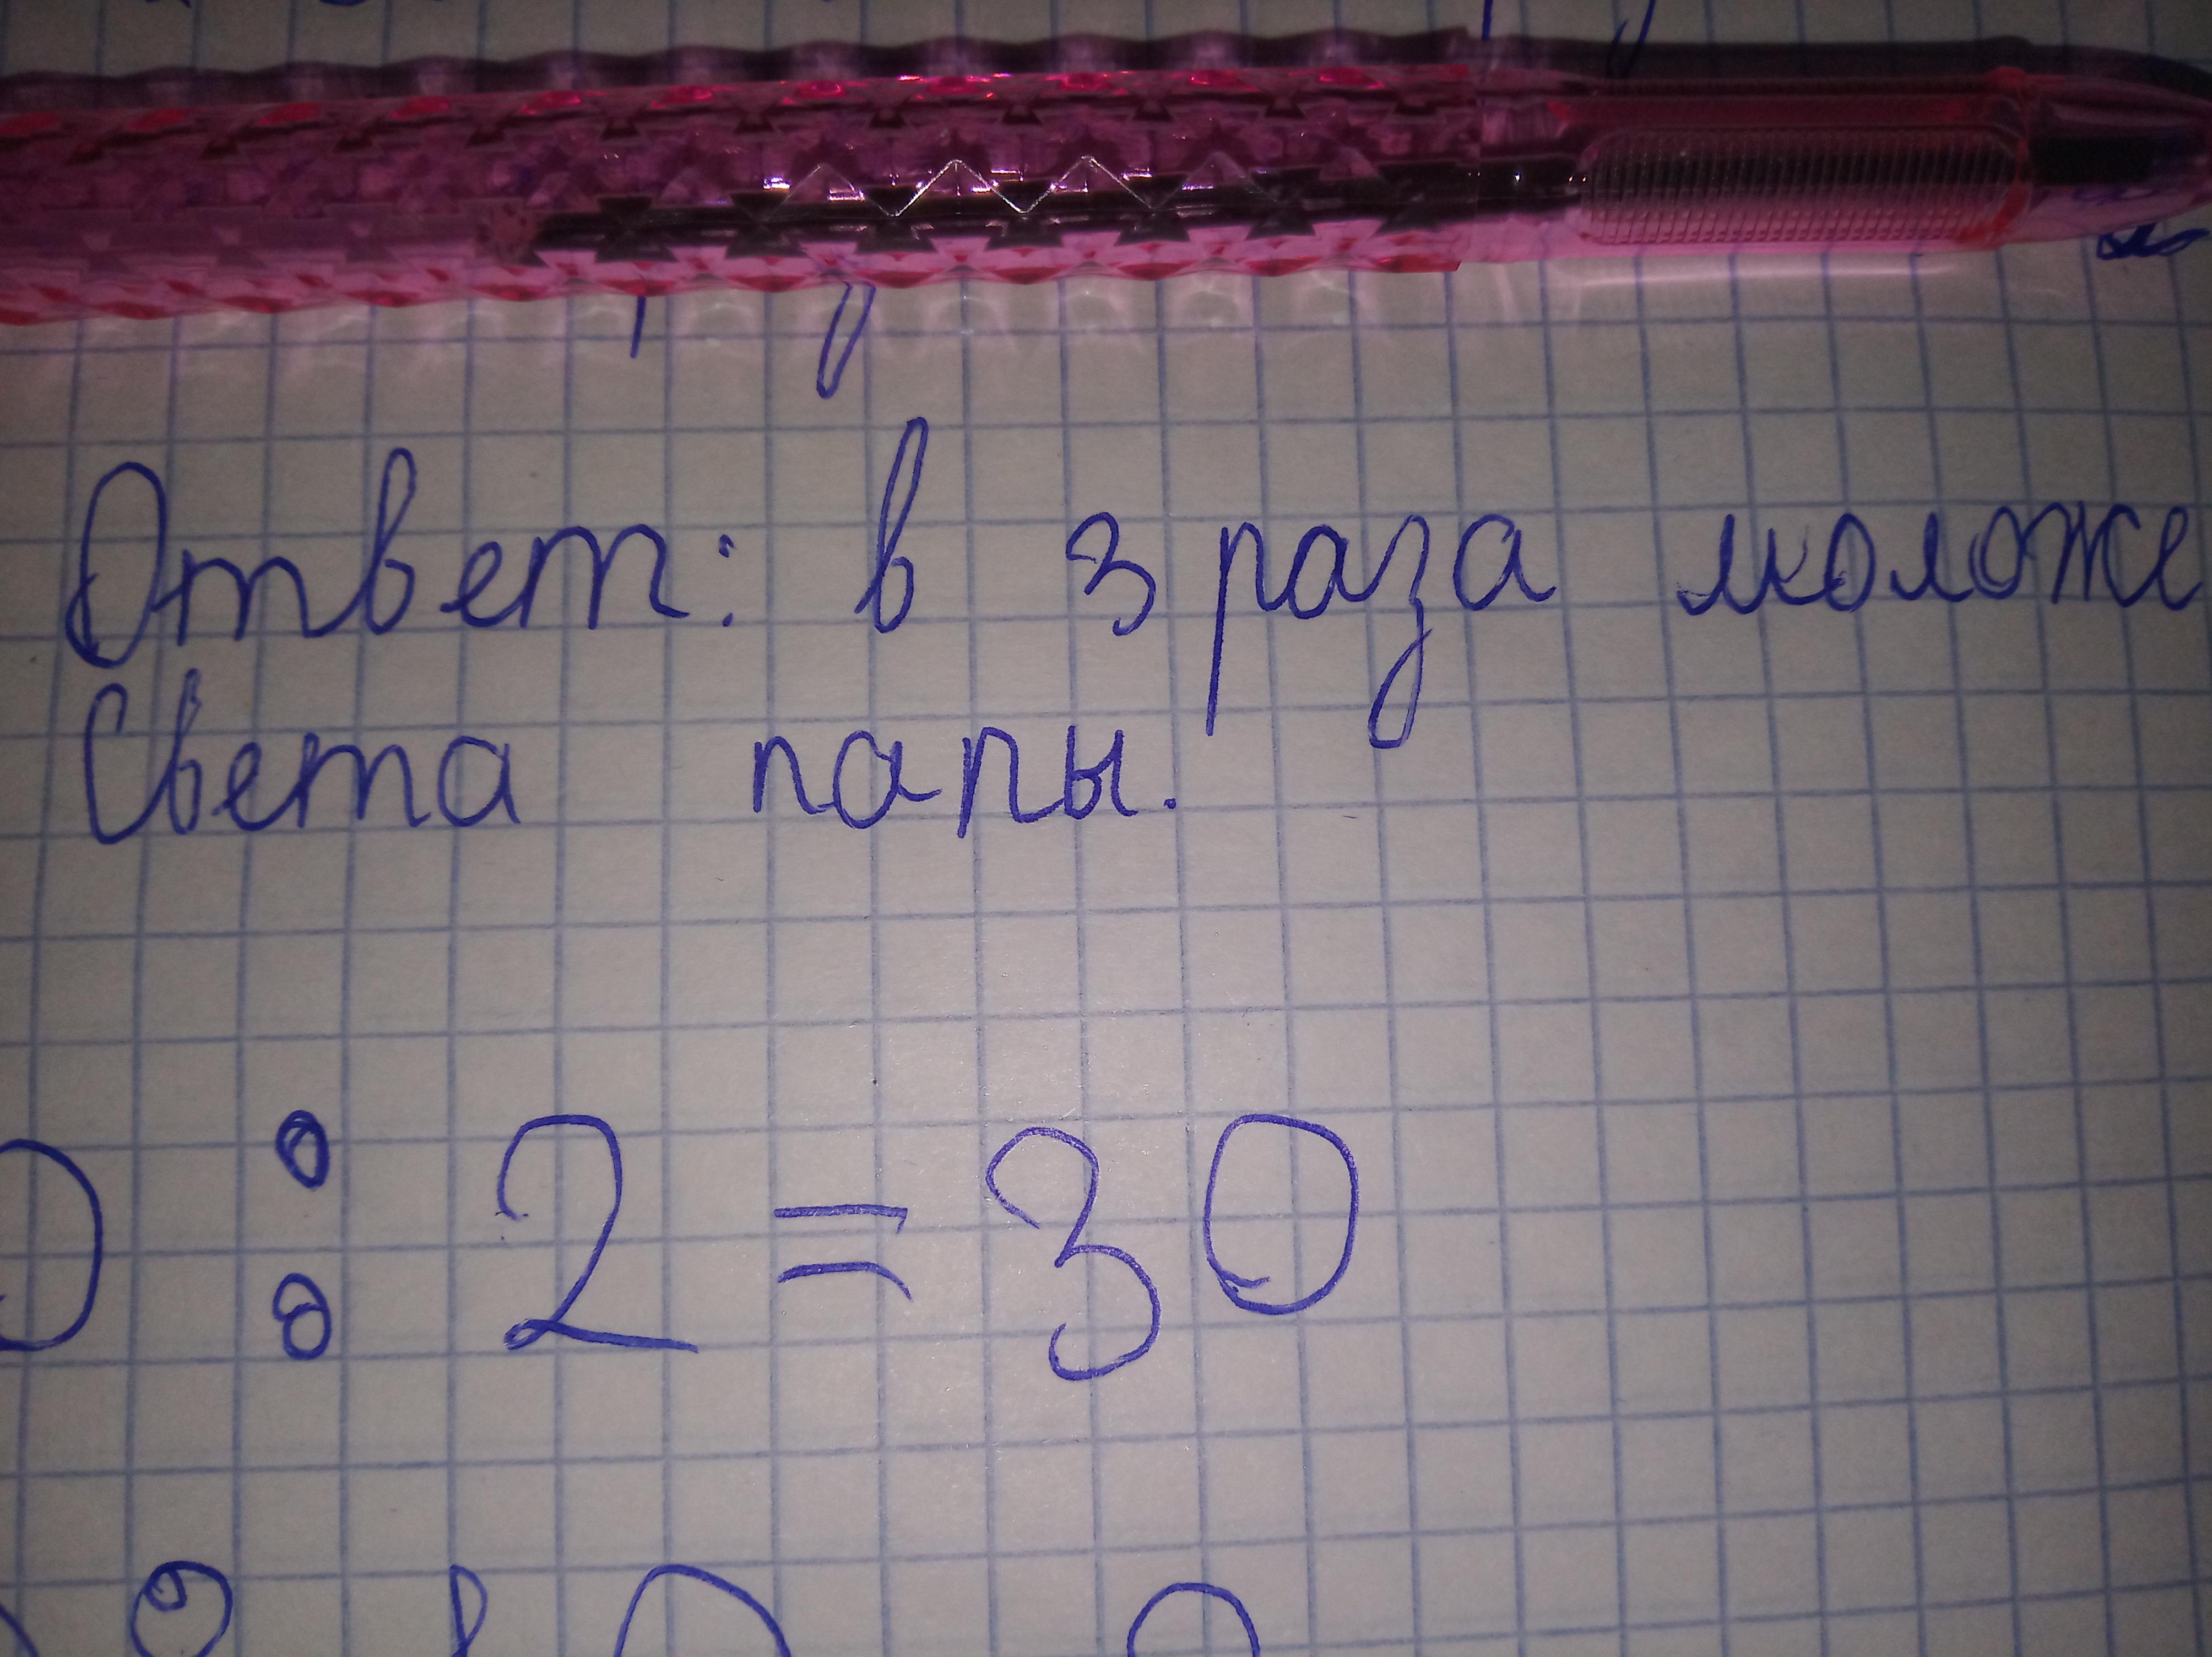 Ответ: в 3 раза моложе
Света папы.
0 : 2 = 30